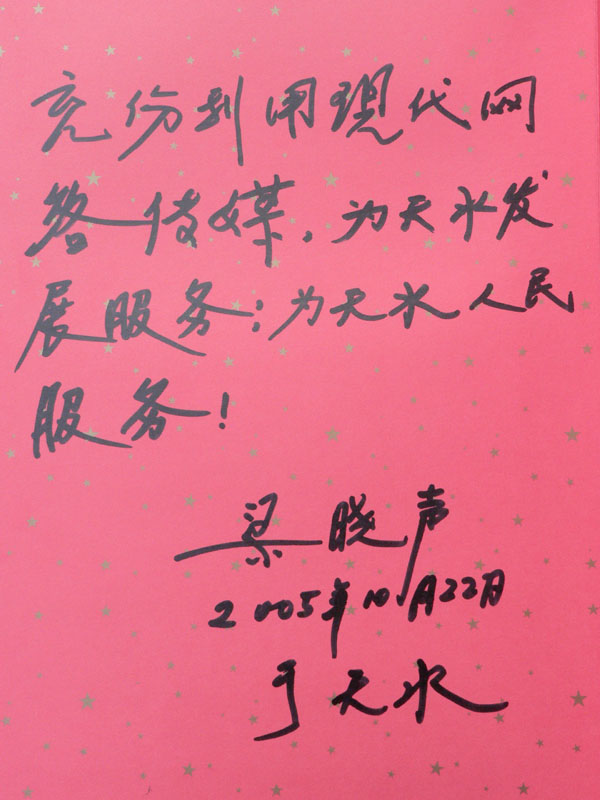 充份利用现代网
络传媒,为天水发
展服务;为天水人民
服务!
梁晓声
2005年10月22日
于天水